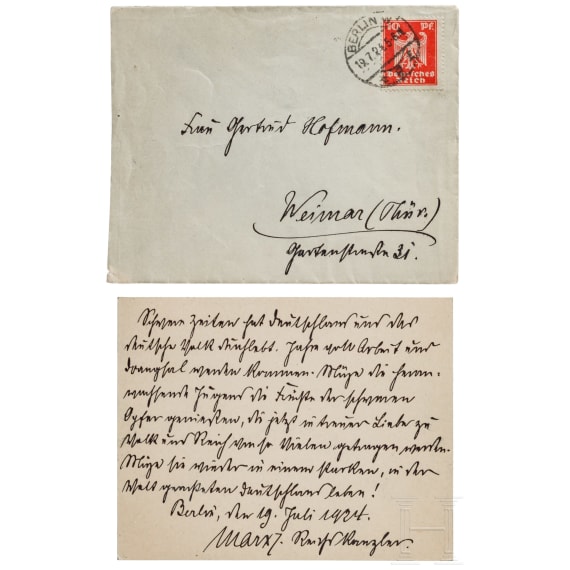 BERLIN W
19.7.24.
10 Pf.
Deutsches
Reich
Frau Gertrud Hofmann.
Weimar (Thür.)
Gartenstraße 31.
Schwere Zeiten hat Deutschland und das
deutsche Volk durchlebt. Jahre voll Arbeit und
Drangsal werden kommen. Möge die heran-
wachsende Jugend die Früchte der schweren
Opfer genießen, die jetzt in treuer Liebe zu
Volk und Reich von so Vielen getragen werden.
Möge sie wieder in einem starken, in der
Welt geachteten Deutschland leben!
Berlin, den 19. Juli 1924.
Marx, Reichskanzler.